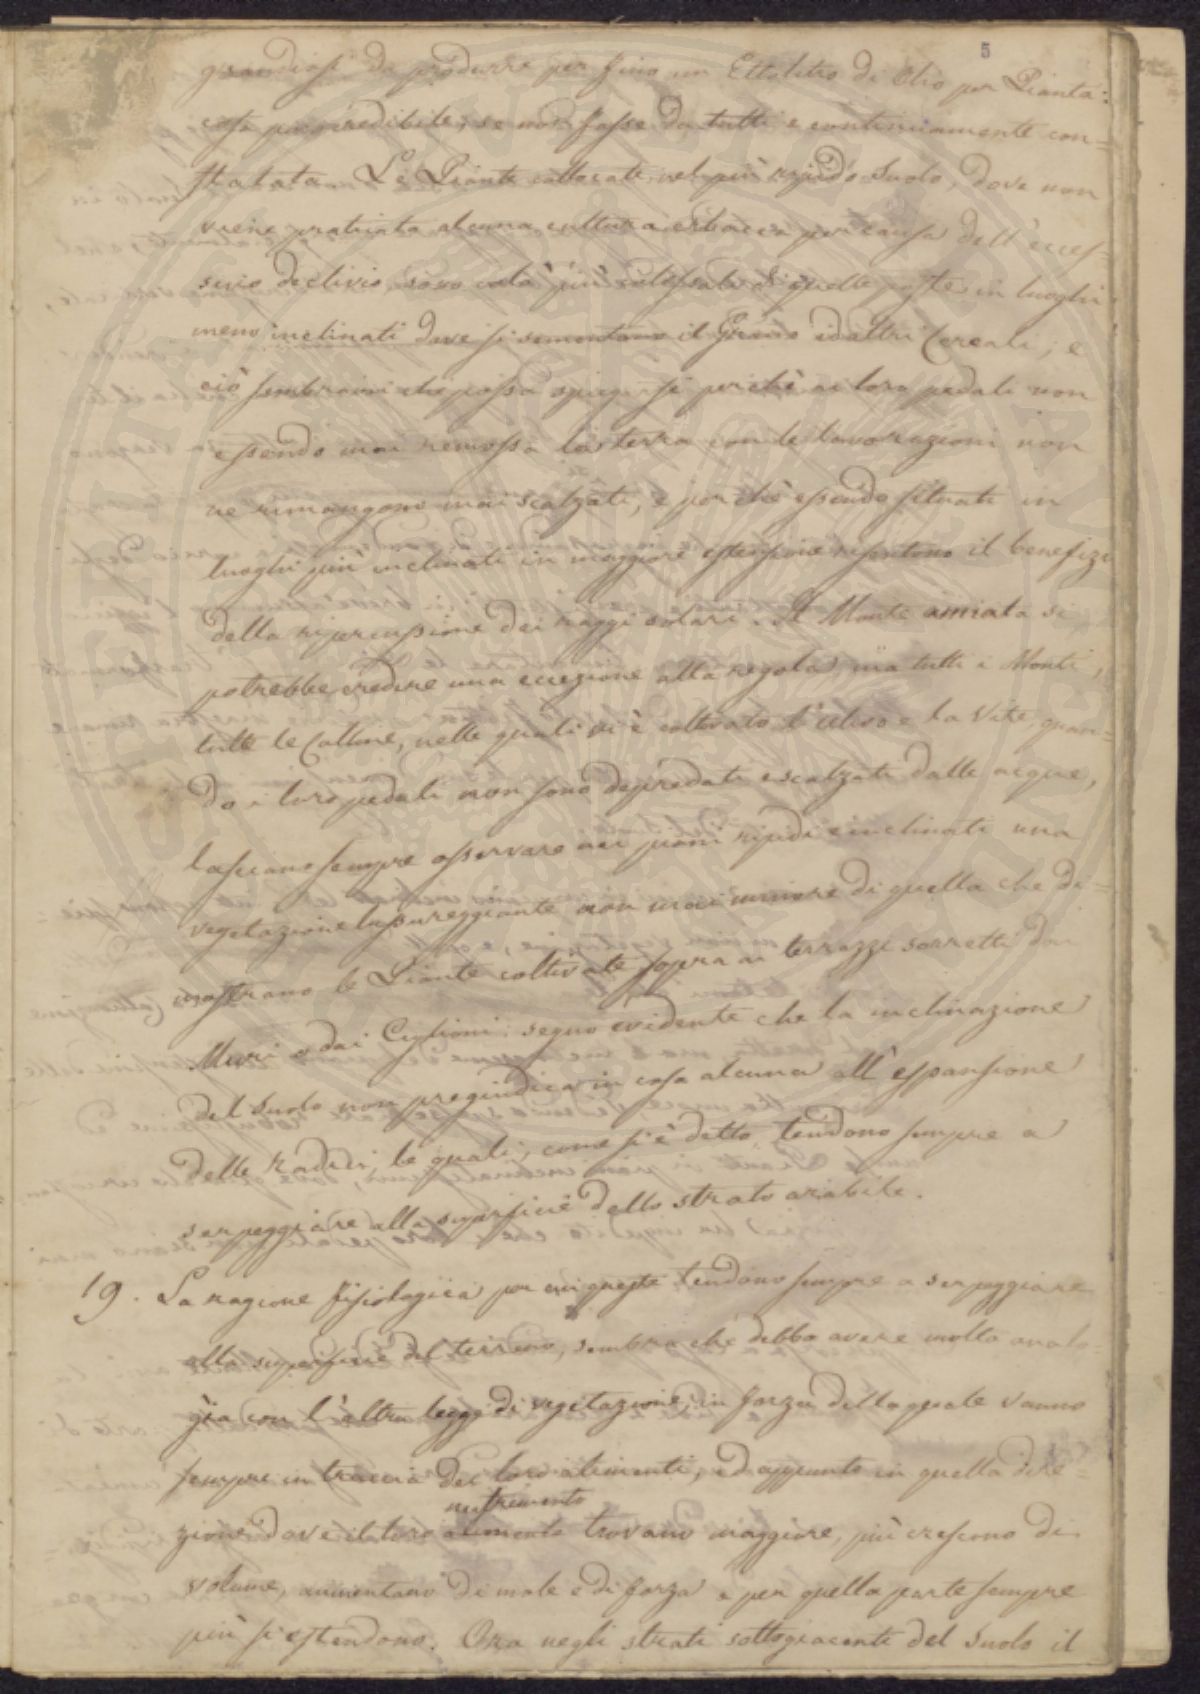 5
grandiosi da produrre per fino un Ettolitro di Olio per Pianta:
cosa poco credibile, se non fosse da tutti e continuamente con=
statata. Le Piante collocate nel più ripido Suolo, dove non
viene praticata alcuna cultura erbacea per causa dell'ecces=
sivo declivio, sono colà più colossali di quelle poste in luoghi
meno inclinati dove si sementano il Grano ed altri Cereali; e
ciò sembrami che possa spiegarsi perchè ai loro pedali non
essendo mai remossa la terra con le lavorazioni non
ne rimangono mai scalzati, e perchè essendo situati in
luoghi più inclinati in maggiore estensione risentono il benefizi
della ripercussione dei raggi solari. Il Monte amiata si
potrebbe credere una eccezione alla regola, ma tutti i Monti,
tutte le Colline, nelle quali vi è coltivato l'ulivo e la Vite, quan=
do i loro pedali non sono depredati e scalzati dalle acque,
lasciano sempre osservare nei piani ripidi e inclinati una
vegetazione lussureggiante non mai minore di quella che di=
mostrano le Piante coltivate sopra ai terrazzi sorretti dai
Muri o dai Ciglioni: segno evidente che la inclinazione
del Suolo non pregiudica in cosa alcuna all'espansione
delle Radici, le quali, come si è detto, tendono sempre a
serpeggiare alla superficie dello strato arabile.
19. La ragione fisiologica per cui queste tendono sempre a serpeggiare
alla superficie del terreno, sembra che debba avere molta analo=
gia con l'altra legge di vegetazione, in forza della quale vanno
sempre in traccia dei loro alimenti, ed appunto in quella dire=
nutrimento
zione dove il loro alimento trovano maggiore, più crescono di
volume, aumentano di mole e di forza e per quella parte sempre
più si estendono. Ora negli strati sottogiacenti del Suolo il